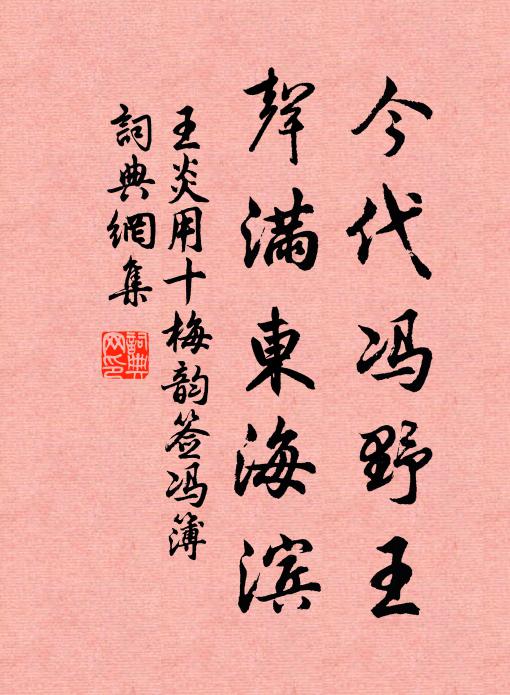 今代冯野王
声满東海滨
王炎用十梅韵签冯簿
詞典網集
詞典网印